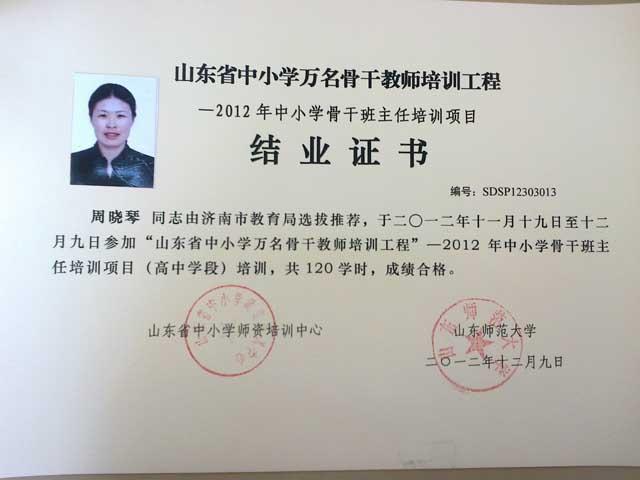 山东省中小学万名骨干教师培训工程
—2012 年中小学骨干班主任培训项目
结业证书
编号：SDSP12303013
周晓琴 同志由济南市教育局选拔推荐，于二〇一二年十一月十九日至十二
月九日参加“山东省中小学万名骨干教师培训工程”—2012 年中小学骨干班主
任培训项目（高中学段）培训，共 120 学时，成绩合格。
山东省中小学师资培训中心
山东师范大学
二〇一二年十二月九日
山东师范大学